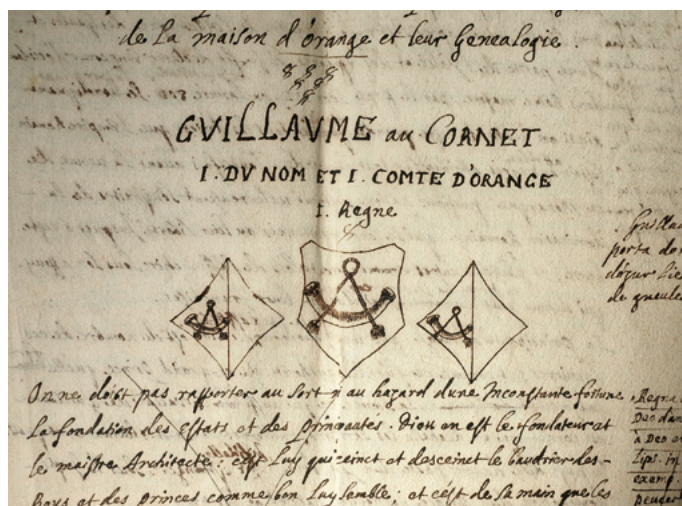 de La maison d'orange et leur Genealogie.
GVILLAVME au CORNET
I. DV NOM ET I. COMTE D'ORANGE
I. Regne
Guillau
porta do
d'azur Lie
de gueule
On ne doist pas rapporter au sort ny au hazard dune Inconstante fortune
La fondation des estats et des principautes. Dieu en est le fondateur et
le maistre Architecte: c'est Luy qui ceinct et desceinct le baudrier des-
Roys et des princes comme bon Luy semble; et c'est de sa main que les
Regna
Deo dan
à Deo
Lips. in
exemp.